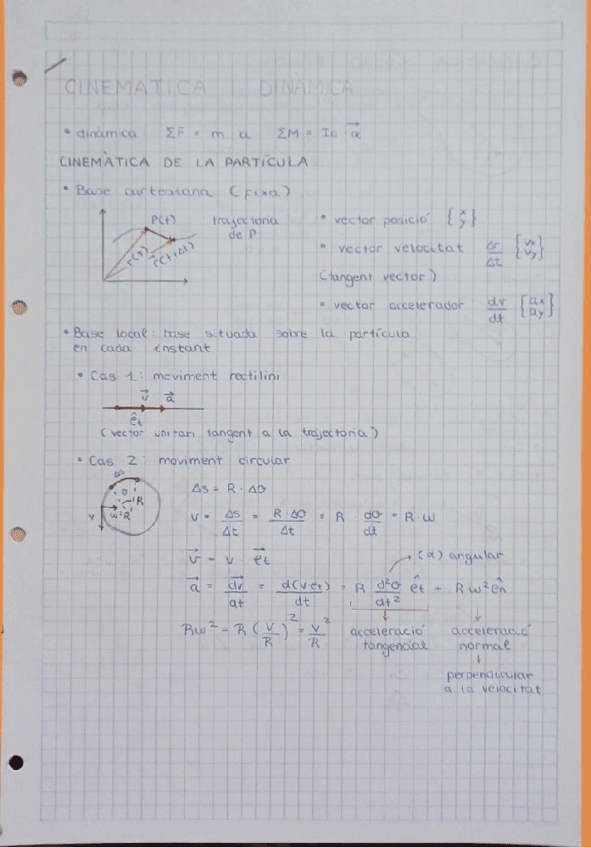 CINEMATICA I DINÀMICA
• dinàmica ΣF = m a ΣM = I₀ α⃗
CINEMÀTICA DE LA PARTÍCULA
• Base cartesiana (Fixa)
P(t) trajectoria de P
r(t) r(t+Δt)
• vector posició {x y}
• vector velocitat Δr/Δt {vx vy}
(tangent vector)
• vector accelerador dv/dt {ax ay}
• Base local: base situada sobre la partícula
en cada instant
• Cas 1: moviment rectilini
v⃗ a⃗
êt
(vector unitari tangent a la trajectoria)
• Cas 2: moviment circular
Δs
θ R
v ω R
Δs = R · Δθ
v = Δs/Δt = R·Δθ/Δt = R · dθ/dt = R ω
v⃗ = v · e⃗t
(α) angular
a⃗ = dv⃗/dt = d(v·et)/dt = R d²θ/dt² êt + R ω² ên
Rω² = R (v/R)² = v²/R
acceleració tangencial
acceleració normal
perpendicular
a la velocitat